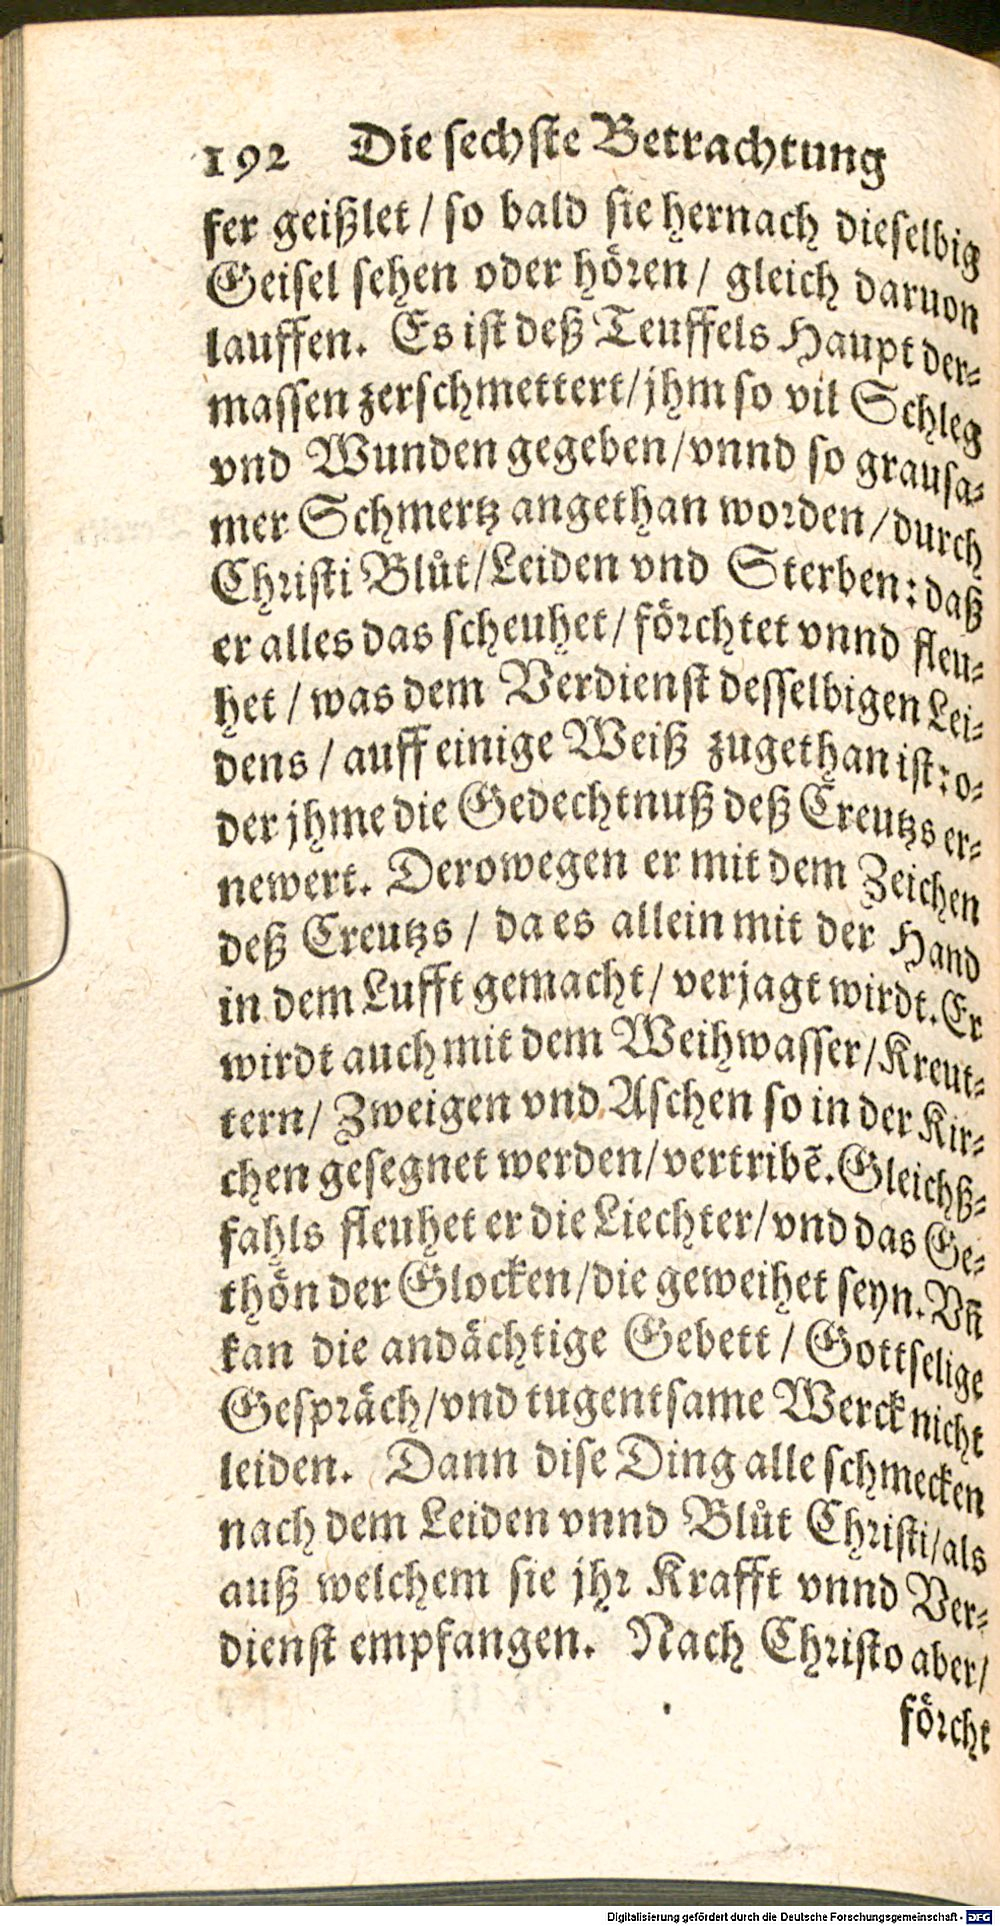 192 Die sechste Betrachtung
fer geißlet / so bald sie hernach dieselbig
Geisel sehen oder hören / gleich daruon
lauffen. Es ist deß Teuffels Haupt der-
massen zerschmettert / jhm so vil Schleg
vnd Wunden gegeben / vnnd so grausa-
mer Schmertz angethan worden / durch
Christi Blůt / Leiden vnd Sterben: daß
er alles das scheuhet / förchtet vnnd fleu-
het / was dem Verdienst desselbigen Lei-
dens / auff einige Weiß zugethan ist: o-
der jhme die Gedechtnuß deß Creutzs er-
newert. Derowegen er mit dem Zeichen
deß Creutzs / da es allein mit der Hand
in dem Lufft gemacht / verjagt wirdt. Er
wirdt auch mit dem Weihwasser / Kreut-
tern / Zweigen vnd Aschen so in der Kir-
chen gesegnet werden / vertribẽ. Gleichß-
fahls fleuhet er die Liechter / vnd das Ge-
thön der Glocken / die geweihet seyn. Vñ
kan die andächtige Gebett / Gottselige
Gespräch / vnd tugentsame Werck nicht
leiden. Dann dise Ding alle schmecken
nach dem Leiden vnnd Blůt Christi / als
auß welchem sie jhr Krafft vnnd Ver-
dienst empfangen. Nach Christo aber /
förcht
Digitalisierung gefördert durch die Deutsche Forschungsgemeinschaft - DFG